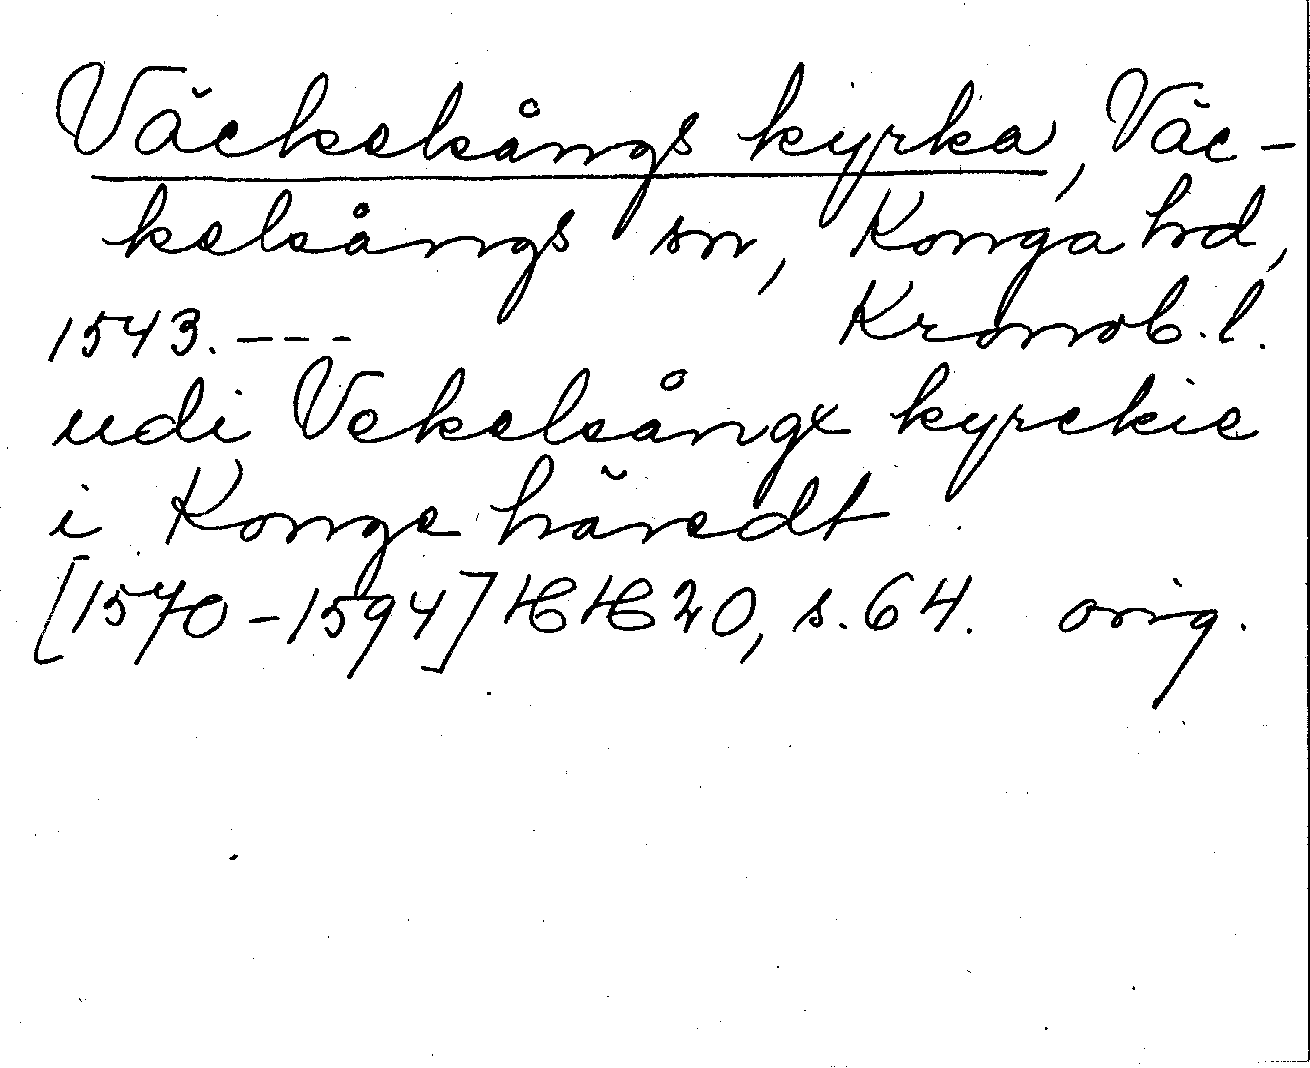 Väckelsångs kyrka, Väc-
kelsångs sn, Konga hd,
1543. --- Kronob. l.
udi Vekelsångx kyrckie
i Konge häredt
[1570-1594] HH 20, s. 64. orig.